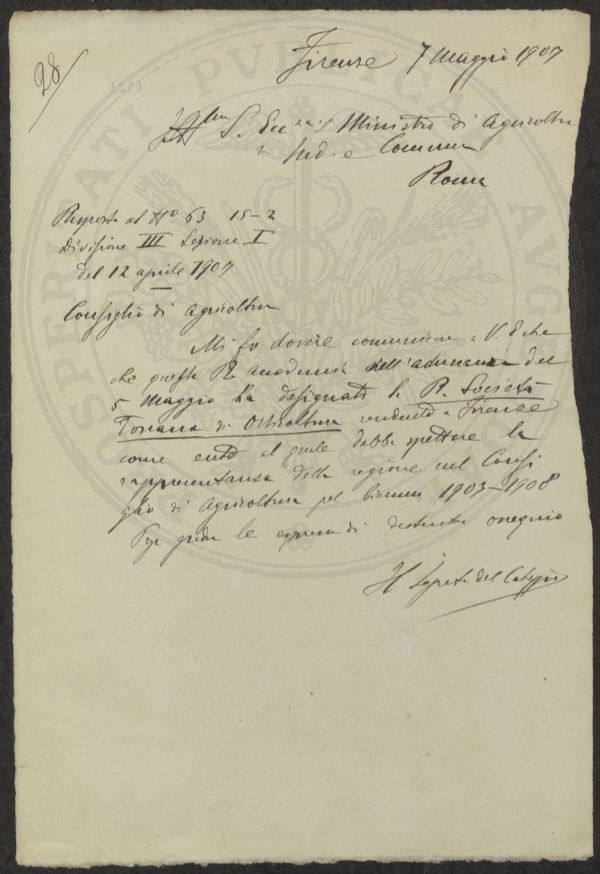 28/
Firenze 7 Maggio 1907
S. Ecc.za Ministro di Agricoltra
Ind. e Comm
Roma
Risposta al No 63 15-2
Divisione III Sezione I
del 12 aprile 1907
Consiglio di Agricoltra
Mi fo dovere comunicare a V. E che
che questa R accademia nell'adunanza del
5 Maggio ha designato la R. Società
Toscana di Orticoltura residente a Firenze
come ente al quale debba spettare la
rappresentanza della regione nel Consi
glio di Agricoltura pel biennio 1907-1908
le espressi di distinto ossequio
Il Segret. del